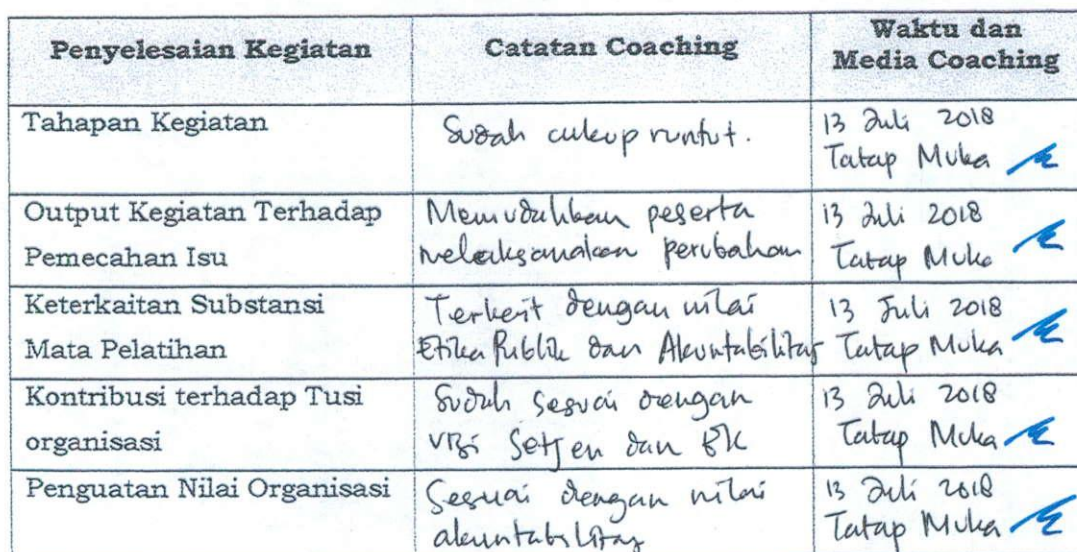 Penyelesaian Kegiatan
Catatan Coaching
Waktu dan
Media Coaching
Tahapan Kegiatan
Sudah cukup runtut.
13 Juli 2018
Tatap Muka
Output Kegiatan Terhadap
Pemecahan Isu
Memudahkan peserta
melaksanakan perubahan
13 Juli 2018
Tatap Muka
Keterkaitan Substansi
Mata Pelatihan
Terkait dengan nilai
Etika Publik dan Akuntabilitas
13 Juli 2018
Tatap Muka
Kontribusi terhadap Tusi
organisasi
Sudah sesuai dengan
visi Setjen dan BK
13 Juli 2018
Tatap Muka
Penguatan Nilai Organisasi
Sesuai dengan nilai
akuntabilitas
13 Juli 2018
Tatap Muka